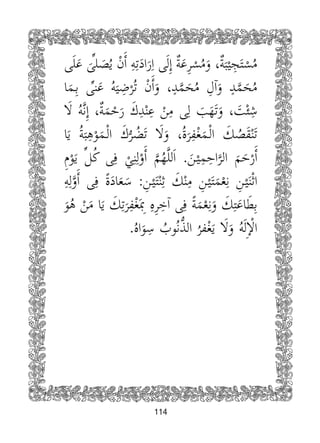 مُسْتَجِيْبَةٌ، وَمُسْرِعَةٌ إِلَى إِرَادَتِهِ أَنْ يُصَلِّىَ عَلَى
مُحَمَّدٍ وَآلِ مُحَمَّدٍ، وَأَنْ تُرْضِيَهُ عَنِّى بِمَا
شِئْتَ، وَتَهَبَ لِى مِنْ عِنْدِكَ رَحْمَةً، إِنَّهُ لَا
تَنْقُصُكَ الْمَغْفِرَةُ، وَلَا تَضُرُّكَ الْمَوْهِبَةُ يَا
أَرْحَمَ الرَّاحِمِيْنَ. اَللَّهُمَّ أَوْلِنِىْ فِى كُلِّ يَوْمِ
اثْنَيْنِ نِعْمَتَيْنِ مِنْكَ ثِنْتَيْنِ: سَعَادَةً فِى أَوَّلِهِ
بِطَاعَتِكَ وَنِعْمَةً فِى آخِرِهِ بِمَغْفِرَتِكَ يَا مَنْ هُوَ
الْإِلَهُ وَلَا يَغْفِرُ الذُّنُوبُ سِوَاهُ.
114